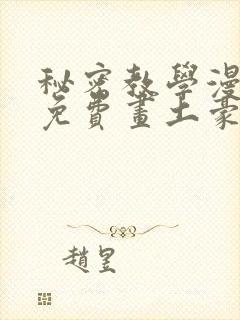 秘密教學漫
免費畫土豪
趙昱